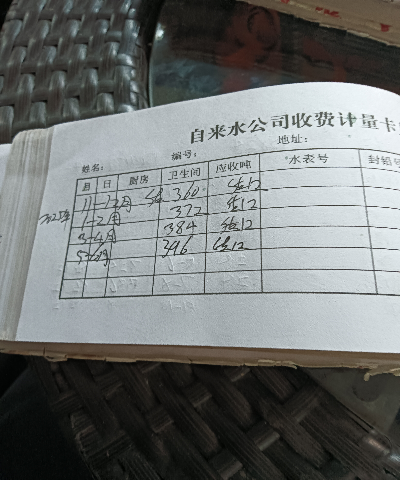 自来水公司收费计量卡
姓名: 编号: 地址:
月 日 厨房 卫生间 应收吨 水表号 封铅号
11-12月 360 12
1-2月 372 12
3-4月 384 12
5-6月 396 12